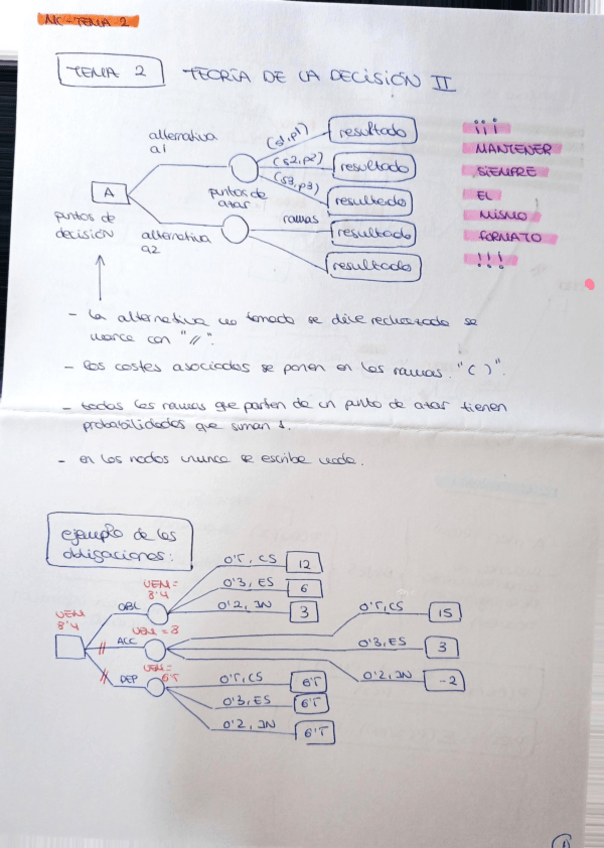 MC-TEMA 2
TEMA 2 TEORÍA DE LA DECISIÓN II
alternativa
a1
(s1,p1)
(s2,p2)
(s3,p3)
resultado
resultado
resultado
resultado
resultado
A
puntos de
decisión
puntos de
azar
ramas
alternativa
a2
¡¡¡
MANTENER
SIEMPRE
EL
MISMO
FORMATO
!!!
- La alternativa no tomada se dice rechazada se
marca con "//".
- Los costes asociados se ponen en las ramas. "( )".
- todas las ramas que parten de un punto de azar tienen
probabilidades que suman 1.
- en los nodos nunca se escribe nada.
ejemplo de las
obligaciones:
VEM
8'4
OBL
VEM =
8'4
0'5, CS 12
0'3, ES 6
0'2, IN 3
// ACC
VEM = 8
0'5, CS 15
0'3, ES 3
0'2, IN -2
// DEP
VEM =
6'5
0'5, CS 6'5
0'3, ES 6'5
0'2, IN 6'5
1